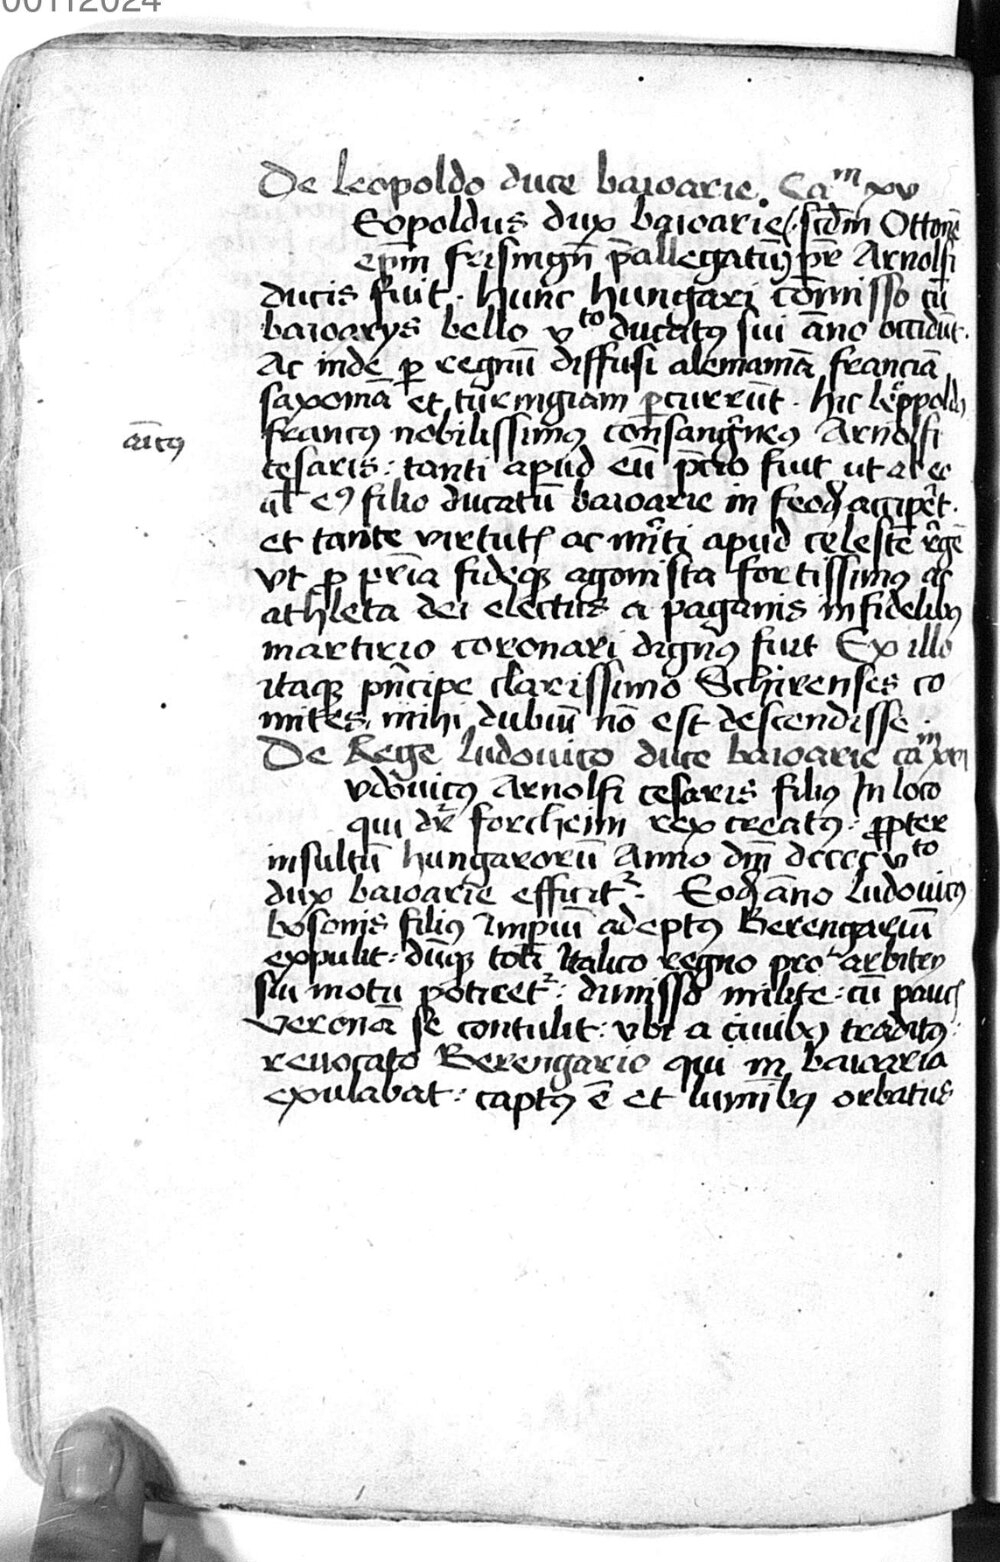 00112024
De leopoldo duce baioarie. Ca^m xv
Eopoldus dux baioarie scdm Ottonē
ep̄m frisingn̄ p̄allegatū pr̄ Arnolfi
ducis fuit. hunc hungari cōmisso cū
baioarys bello v^to ducatꝰ sui anno occidūt.
Ac inde ꝑ regnū diffusi alemaniā franciā
saxoniā et turingiam ꝑcurrūt. hic leoppoldꝰ
amicꝰ
francꝰ nobilissimꝰ consanguīeꝰ Arnolfi
cesaris: tanti apud eū p̄cio fuit ut ab eo
eꝰ filio ducatū baioarie in feodū accipet.
et tante virtutꝭ ac mīti apud celeste rgē
vt ꝓ pr̄ia fideqꝫ agonista fortissimꝰ ac
athleta dei electus a paganis infidelibꝰ
martirio coronari dignꝰ fuit Ex illo
itaqꝫ pn̄cipe clarissimo Schirenses co
mites mihi dubiū nō est descendisse.
De Rege Ludovico duce baioarie ca^m xvi
vdovicꝰ Arnolfi cesaris filiꝰ In loco
qui dr̄ forcheim rex creatꝰ. ꝓpter
insultū hungarorū Anno dn̄i dcccc v^to
dux baioarie efficit^r. Eodē āno Ludovicꝰ
bosonis filiꝰ impiū adeptꝰ Berengariū
expulit: dūqꝫ toti Italico regno pro arbitrii
sui motu potiret^r: dimisso milite: cū paucꝭ
Veronā se contulit: vbi a civibꝰ traditꝰ:
revocato Berengario qui in baioaria
exulabat: captꝰ ē et luminībꝰ orbatus